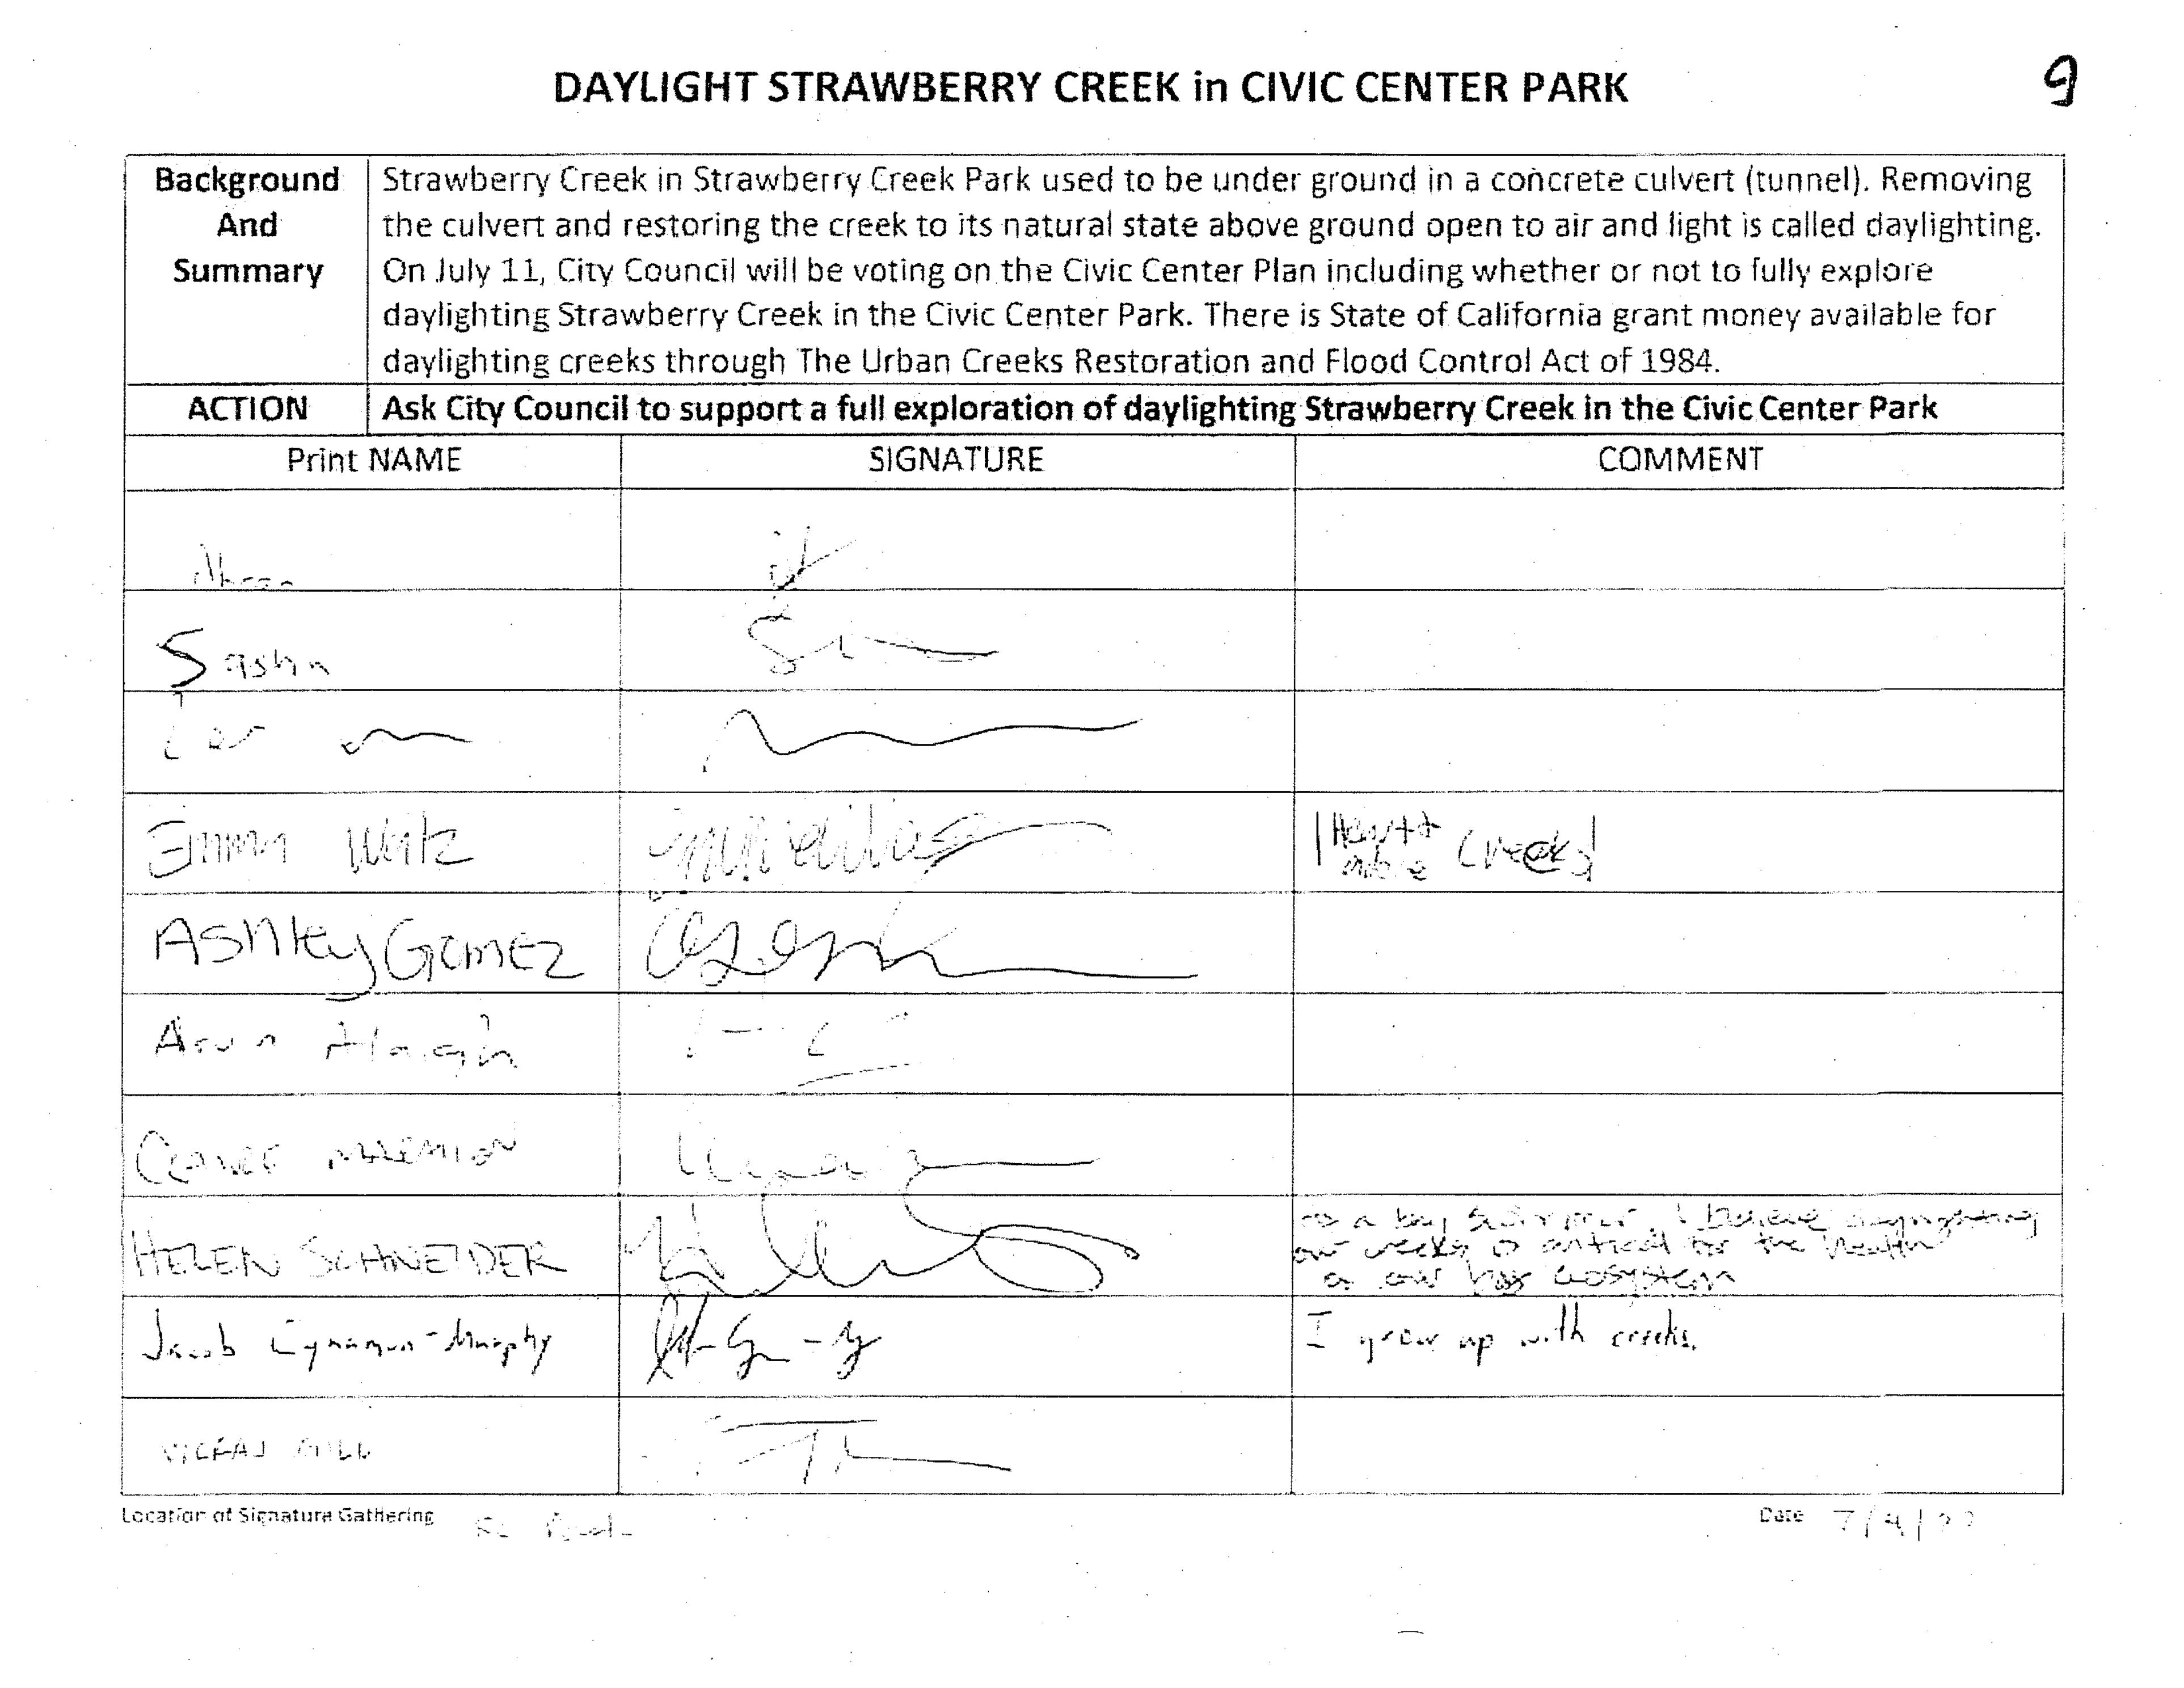 DAYLIGHT STRAWBERRY CREEK in CIVIC CENTER PARK
9
Background And Summary
Strawberry Creek in Strawberry Creek Park used to be under ground in a concrete culvert (tunnel). Removing
the culvert and restoring the creek to its natural state above ground open to air and light is called daylighting.
On July 11, City Council will be voting on the Civic Center Plan including whether or not to fully explore
daylighting Strawberry Creek in the Civic Center Park. There is State of California grant money available for
daylighting creeks through The Urban Creeks Restoration and Flood Control Act of 1984.
ACTION
Ask City Council to support a full exploration of daylighting Strawberry Creek in the Civic Center Park
Print NAME SIGNATURE COMMENT
Sasha
Emma
creeks!
Ashley Gomez
Arun
HELEN SCHNEIDER
As a bay swimmer, I believe daylighting
our creeks is critical for the health
of our bay ecosystem
Jacob Cynamon-Murphy
I grew up with creeks.
Location of Signature Gathering
Date 7/4/